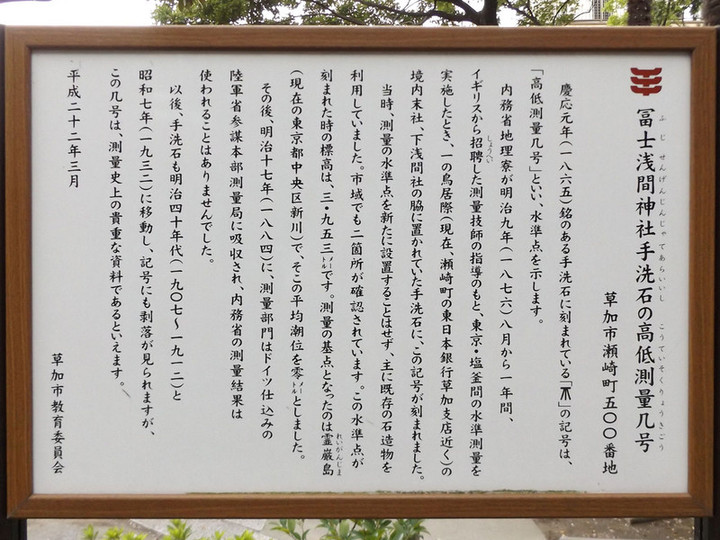 冨士浅間神社手洗石の高低測量几号
ふじせんげんじんじゃてあらいいし こうていそくりょうきごう
草加市瀬崎町五〇〇番地
慶応元年(一八六五)銘のある手洗石に刻まれている「不」の記号は、
「高低測量几号」といい、水準点を示します。
内務省地理寮が明治九年(一八七六)八月から一年間、
イギリスから招聘した測量技師の指導のもと、東京・塩釜間の水準測量を
しょうへい
実施したとき、一の鳥居際(現在、瀬崎町の東日本銀行草加支店近く)の
境内末社、下浅間社の脇に置かれていた手洗石に、この記号が刻まれました。
当時、測量の水準点を新たに設置することはせず、主に既存の石造物を
利用していました。市域でも二箇所が確認されています。この水準点が
刻まれた時の標高は、三・九五三メートルです。測量の基点となったのは霊厳島
れいがんじま
(現在の東京都中央区新川)で、そこの平均潮位を零メートルとしました。
その後、明治十七年(一八八四)に、測量部門はドイツ仕込みの
陸軍省参謀本部測量局に吸収され、内務省の測量結果は
使われることはありませんでした。
以後、手洗石も明治四十年代(一九〇七～一九一二)と
昭和七年(一九三二)に移動し、記号にも剥落が見られますが、
この几号は、測量史上の貴重な資料であるといえます。
平成二十二年三月
草加市教育委員会